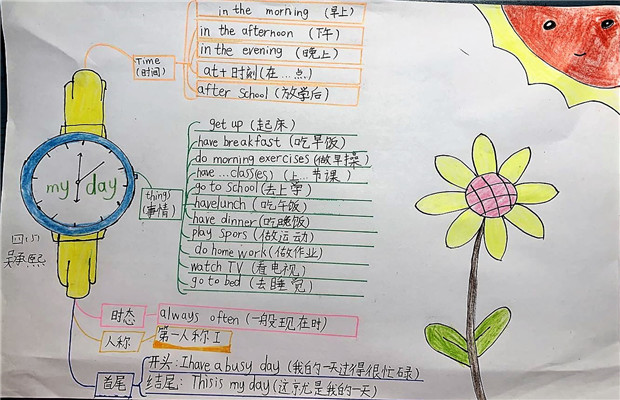 in the morning (早上)
in the afternoon (下午)
in the evening (晚上)
at+时刻(在...点)
after school (放学后)
Time
(时间)
get up (起床)
have breakfast (吃早饭)
do morning exercises (做早操)
have ...class(es) (上...节课)
go to School (去上学)
have lunch (吃午饭)
have dinner (吃晚饭)
play spors (做运动)
do home work (做作业)
watch TV (看电视)
go to bed (去睡觉)
things
(事情)
my day
四(5)
时态
always often (一般现在时)
人称
第一人称 I
首尾
开头: I have a busy day (我的一天过得很忙碌)
结尾: This is my day (这就是我的一天)